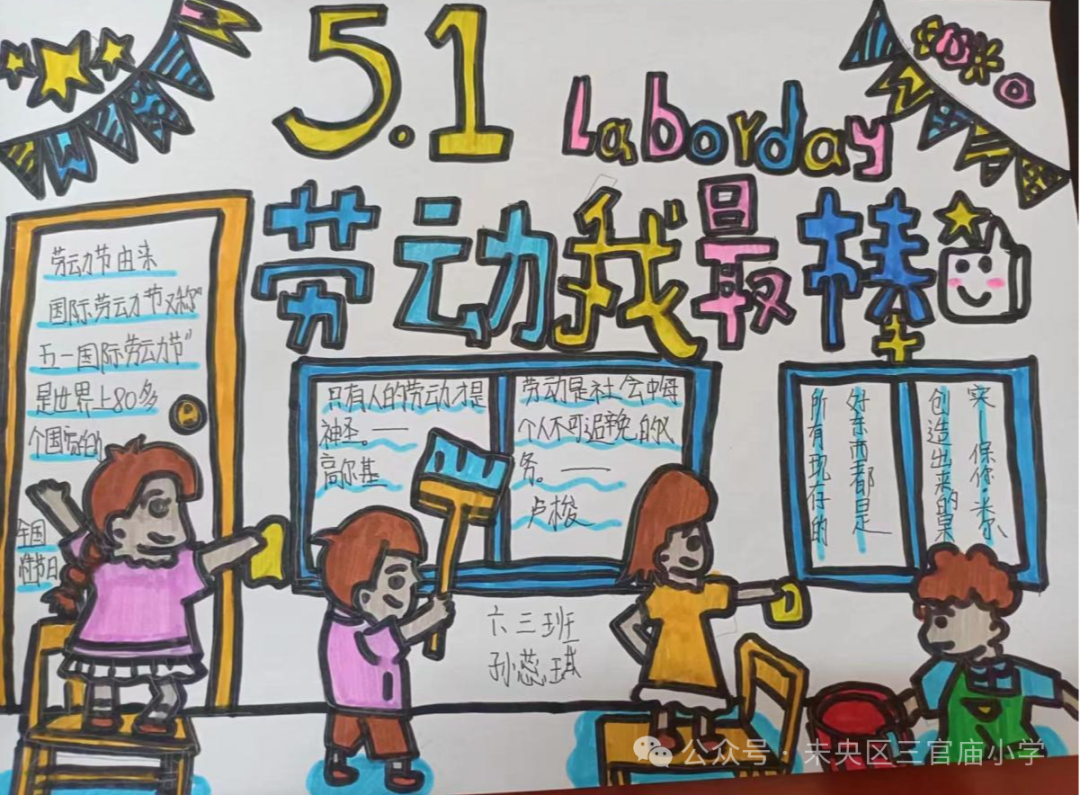 5.1
Laborday
劳动我最棒
劳动节由来
国际劳动节又称“
五一国际劳动节”
是世界上80多
个国家的
全国
性节日
只有人的劳动才是
神圣。——
高尔基
劳动是社会中每
个人不可避免的义
务。——
卢梭
所有现存的
好东西都是
创造出来的果
实——保你·米尔
六三班
孙蕊琪
公众号 · 未央区三官庙小学